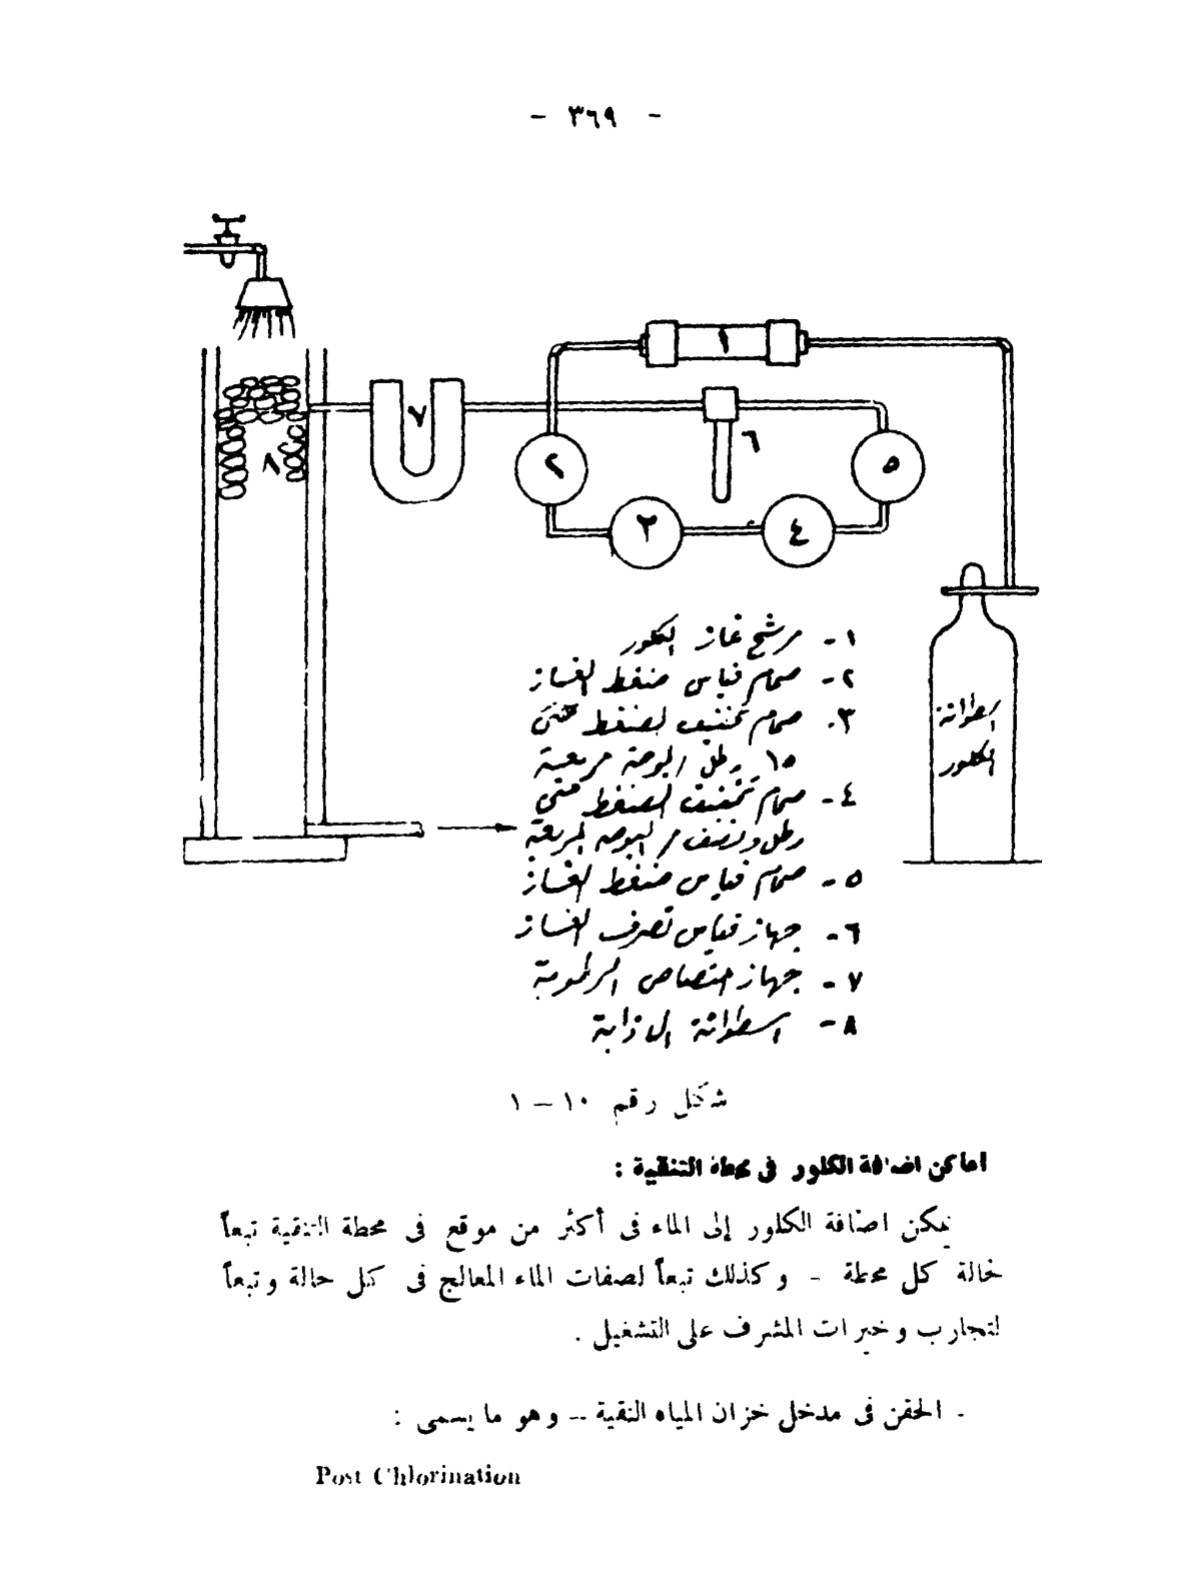 - ٣٦٩ -
١
٢
٣
٤
٥
٦
٧
٨
اسطوانة
الكلور
١- مرشح غاز الكلور
٢- صمام قياس ضغط الغاز
٣- صمام تخفيف الضغط حتى
١٥ رطل / البوصة مربعة
٤- صمام تخفيف الضغط حتى
رطل ونصف / البوصه المربعة
٥- صمام قياس ضغط الغاز
٦- جهاز قياس تصرف الغاز
٧- جهاز امتصاص الرطوبة
٨- اسطوانة الاذابة
شكل رقم ١٠ – ١
اماكن اضافة الكلور فى محطة التنقية :
يمكن اضافة الكلور إلى الماء فى أكثر من موقع فى محطة التنقية تبعاً
لحالة كل محطة - وكذلك تبعاً لصفات الماء المعالج فى كل حالة وتبعاً
لتجارب وخبرات المشرف على التشغيل .
- الحقن فى مدخل خزان المياه النقية – وهو ما يسمى :
Post Chlorination